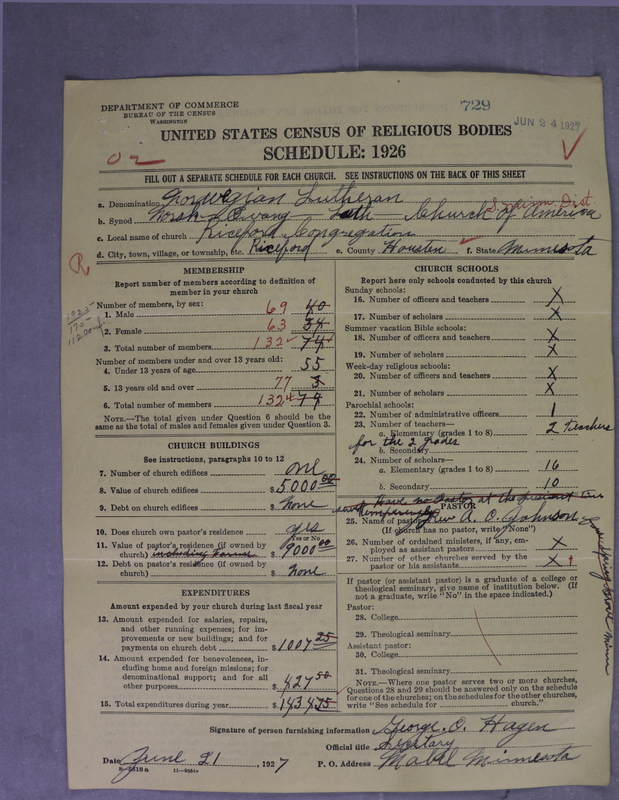 729
JUN 24 1927
DEPARTMENT OF COMMERCE
BUREAU OF THE CENSUS
WASHINGTON
UNITED STATES CENSUS OF RELIGIOUS BODIES
SCHEDULE: 1926
FILL OUT A SEPARATE SCHEDULE FOR EACH CHURCH. SEE INSTRUCTIONS ON THE BACK OF THIS SHEET
a. Denomination Norwegian Lutheran
b. Synod Luth Church of America
c. Local name of church Riceford Congregation
d. City, town, village, or township, etc. Riceford e. County Houston f. State Minnesota
R
MEMBERSHIP
Report number of members according to definition of
member in your church
Number of members, by sex:
1. Male 69 40
2. Female 63 34
3. Total number of members 132 74
Number of members under and over 13 years old:
4. Under 13 years of age 55
5. 13 years old and over 77 3
6. Total number of members 132 74
NOTE.—The total given under Question 6 should be the
same as the total of males and females given under Question 3.
CHURCH BUILDINGS
See instructions, paragraphs 10 to 12
7. Number of church edifices one
8. Value of church edifices $ 5000 00
9. Debt on church edifices $ None
10. Does church own pastor's residence yes
Yes or No
11. Value of pastor's residence (if owned by
church) $ 9000 00
12. Debt on pastor's residence (if owned by
church) $ None
EXPENDITURES
Amount expended by your church during last fiscal year
13. Amount expended for salaries, repairs,
and other running expenses; for im-
provements or new buildings; and for
payments on church debt $ 1007 25
14. Amount expended for benevolences, in-
cluding home and foreign missions; for
denominational support; and for all
other purposes $ 427 50
15. Total expenditures during year $ 1434 75
CHURCH SCHOOLS
Report here only schools conducted by this church
Sunday schools:
16. Number of officers and teachers X
17. Number of scholars X
Summer vacation Bible schools:
18. Number of officers and teachers X
19. Number of scholars X
Week-day religious schools:
20. Number of officers and teachers X
21. Number of scholars X
Parochial schools:
22. Number of administrative officers 1
23. Number of teachers—
a. Elementary (grades 1 to 8) 2 teachers
for the 2 grades
b. Secondary
24. Number of scholars—
a. Elementary (grades 1 to 8) 16
b. Secondary 10
Have no Pastor at the present time
PASTOR
25. Name of pastor Rev A. O. Johnson
(If church has no pastor, write "None")
26. Number of ordained ministers, if any, em-
ployed as assistant pastors X
27. Number of other churches served by the
pastor or his assistants X
Spring Grove Minn
If pastor (or assistant pastor) is a graduate of a college or
theological seminary, give name of institution below. (If
not a graduate, write "No" in the space indicated.)
Pastor:
28. College
29. Theological seminary
Assistant pastor:
30. College
31. Theological seminary
NOTE.—Where one pastor serves two or more churches,
Questions 28 and 29 should be answered only on the schedule
for one of the churches; on the schedules for the other churches,
write "See schedule for church."
Signature of person furnishing information George. O. Hagen
Official title Secretary
Date June 21, 1927 P. O. Address Mabel Minnesota